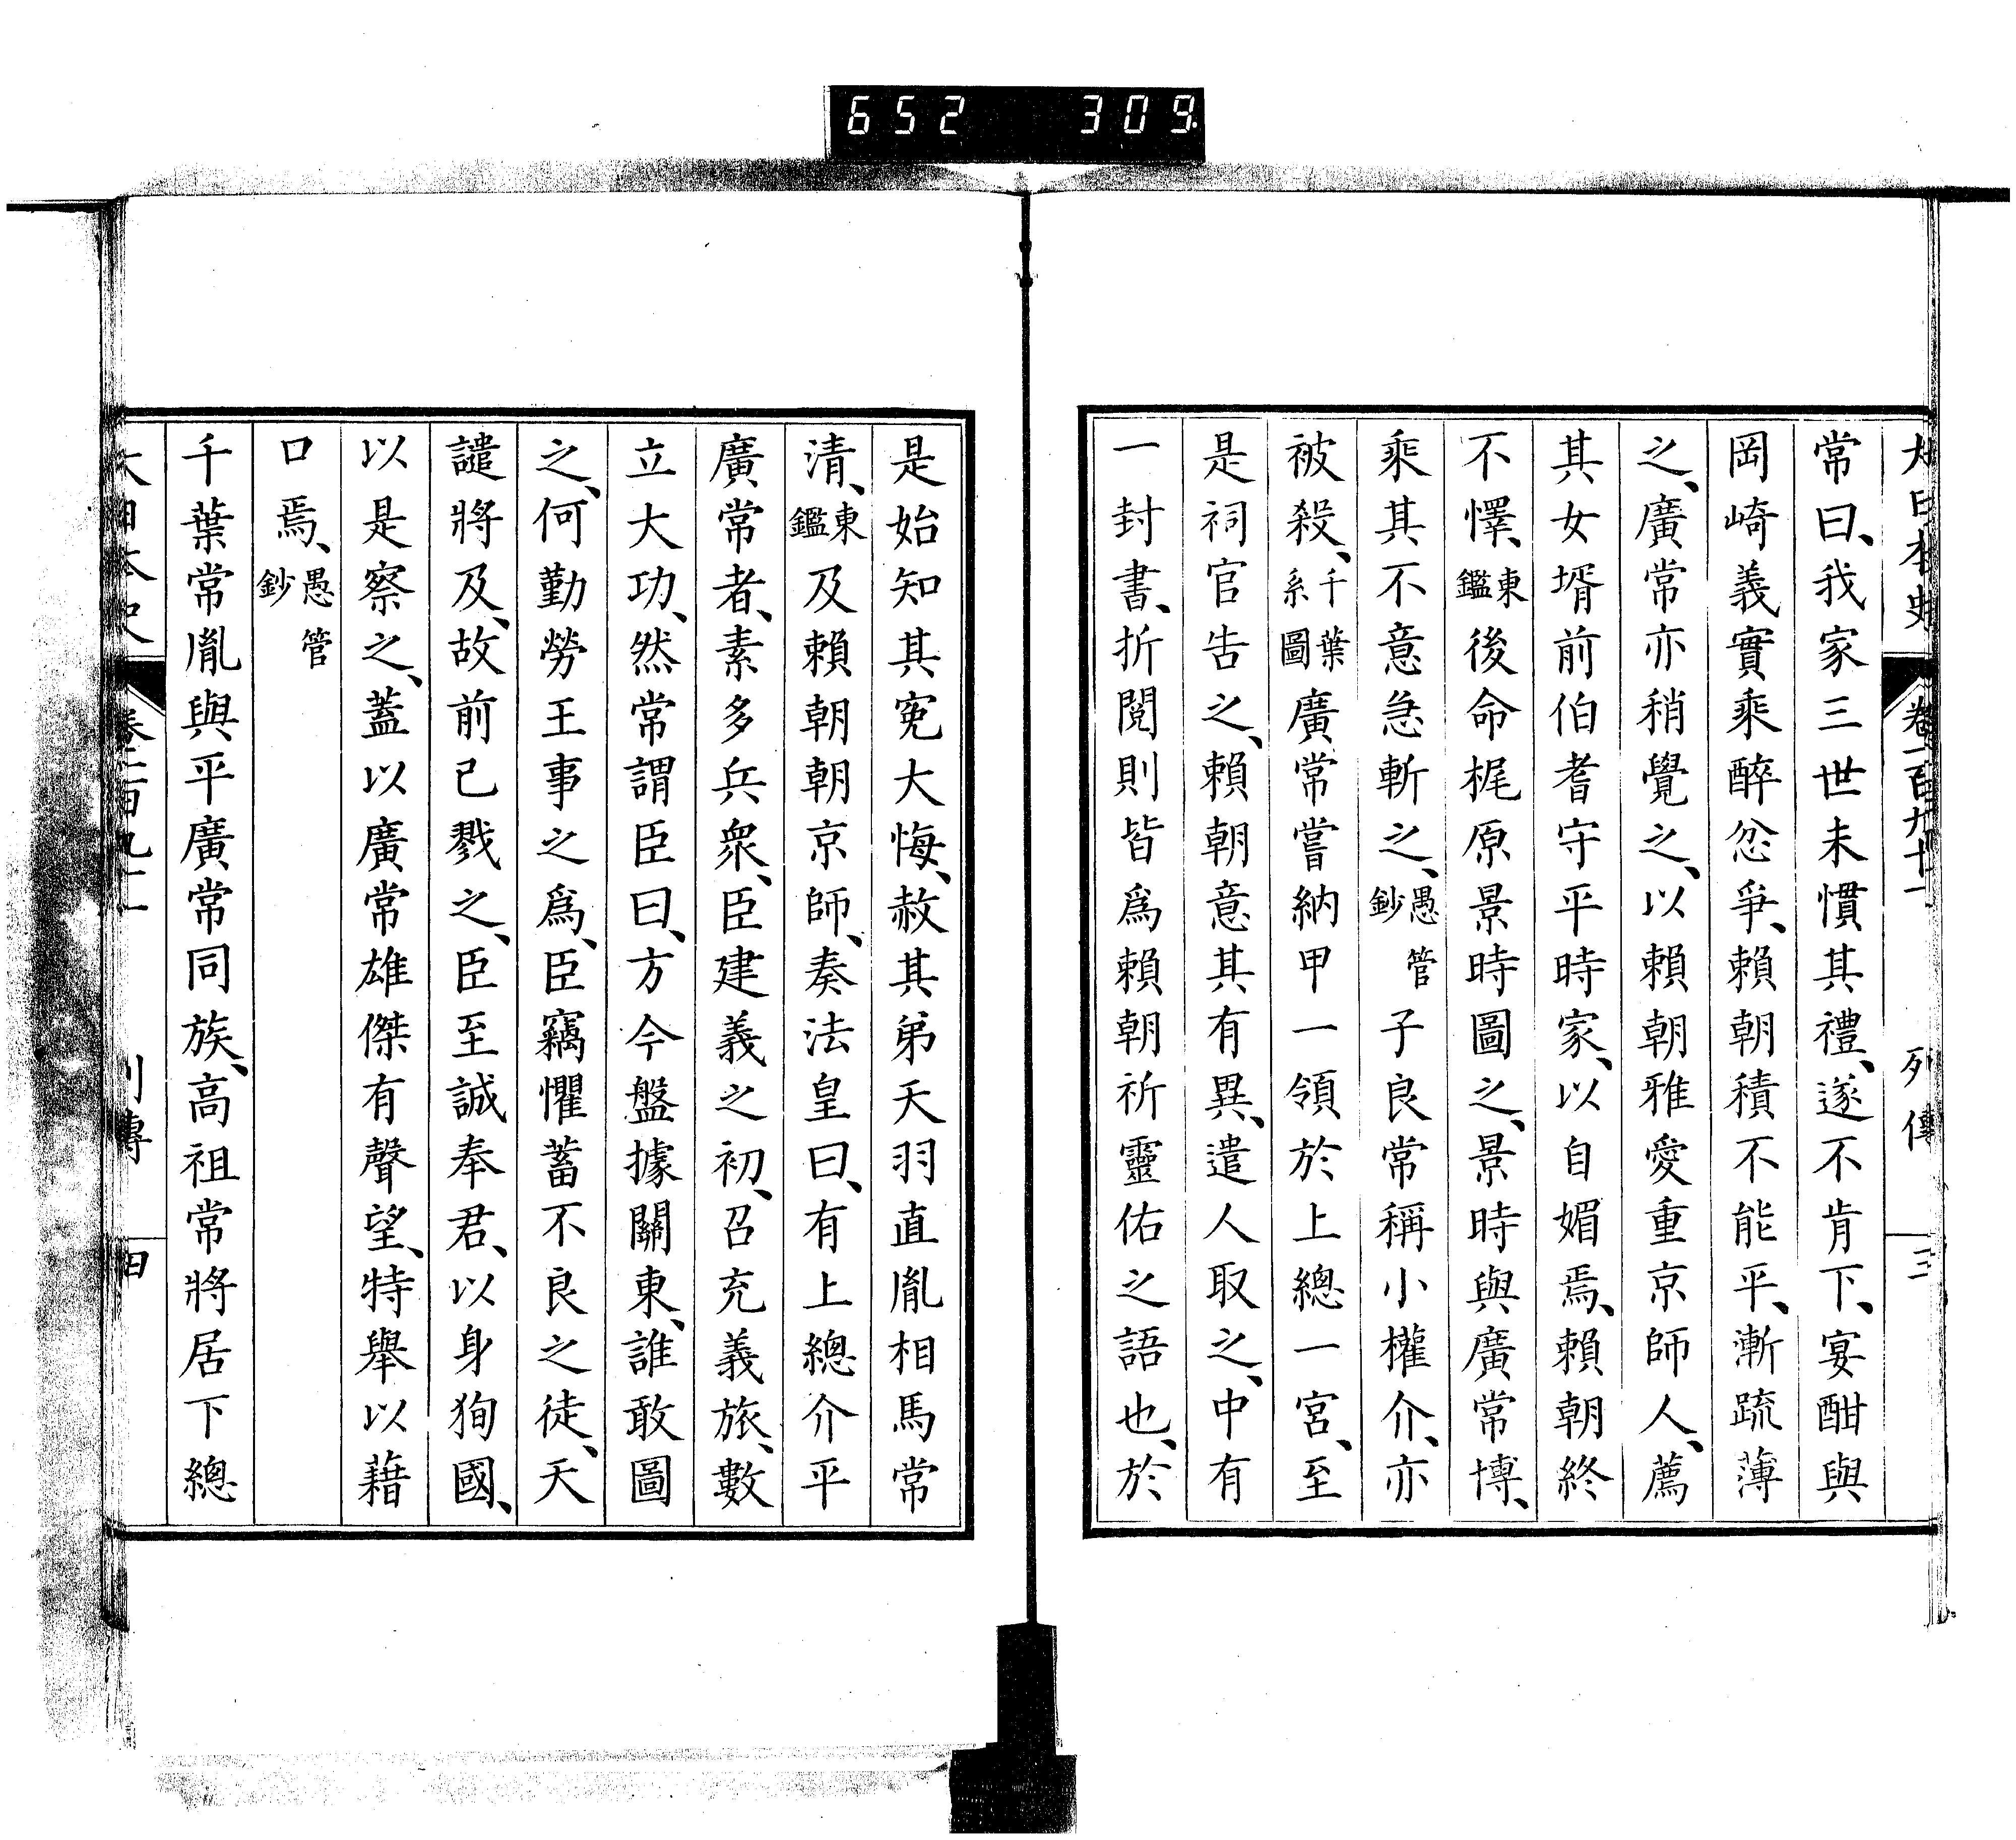 652 309
大日本史 卷一百九十一 列傳 三
常曰、我家三世未慣其禮、遂不肯下、宴酣與
岡崎義實乘醉忿爭、賴朝積不能平、漸疏薄
之、廣常亦稍覺之、以賴朝雅愛重京師人、薦
其女壻前伯耆守平時家、以自媚焉、賴朝終
不懌、東鑑後命梶原景時圖之、景時與廣常博、
乘其不意急斬之、愚管鈔子良常稱小權介、亦
被殺、千葉系圖廣常嘗納甲一領於上總一宮、至
是祠官告之、賴朝意其有異、遣人取之、中有
一封書、折閱則皆爲賴朝祈靈佑之語也、於
是始知其寃大悔、赦其弟天羽直胤相馬常
清、東鑑及賴朝朝京師、奏法皇曰、有上總介平
廣常者、素多兵衆、臣建義之初、召充義旅、數
立大功、然常謂臣曰、方今盤據關東、誰敢圖
之、何勤勞王事之爲、臣竊懼蓄不良之徒、天
譴將及、故前已戮之、臣至誠奉君、以身狥國、
以是察之、蓋以廣常雄傑有聲望、特舉以藉
口焉、愚管鈔
千葉常胤與平廣常同族、高祖常將居下總
大日本史 列傳 四